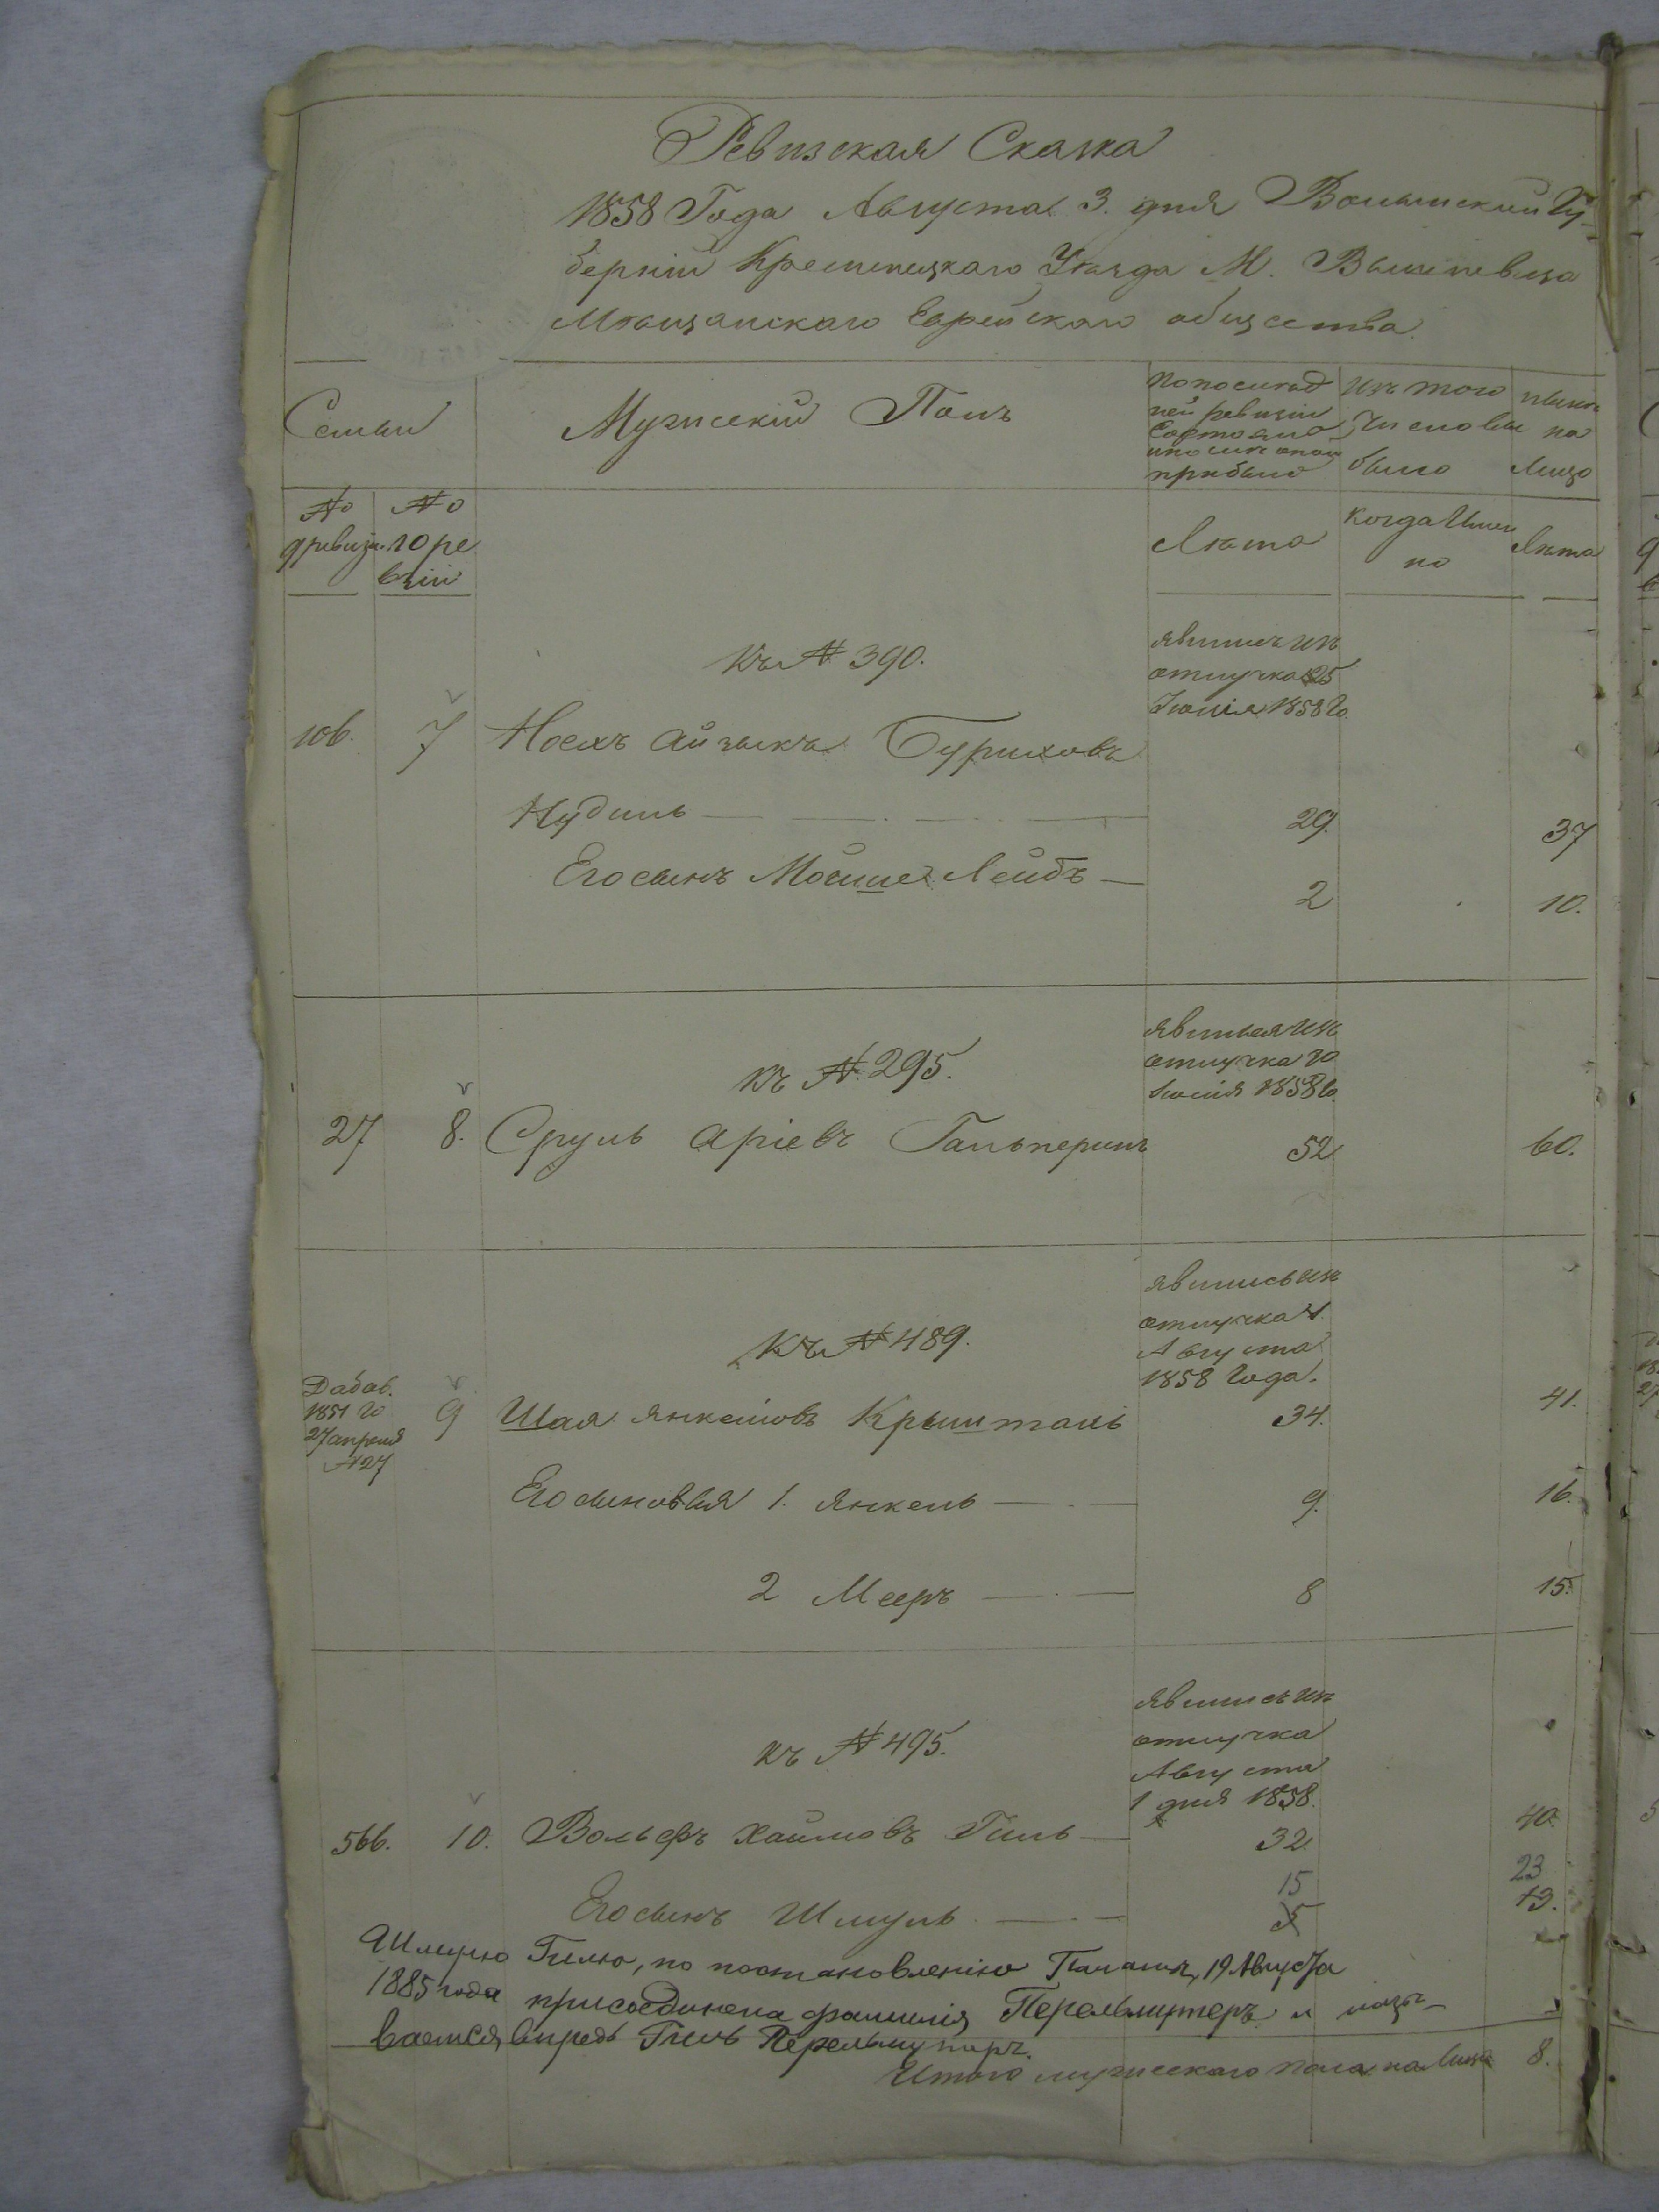 Ревизская Сказка
1858 Года Августа 3. дня Волынской Гу-
берніи Кременецкаго Уѣзда М. Вишневца
Мѣщанскаго Еврейскаго общества.
Семьи
Мужескій Полъ
По послѣд
ней ревизіи
состояло
или послѣ оной
прибыло
Изъ того
числа вы
было
нынѣ
на
лицо
№
9 ревизи.
№
10 ре
визіи
Лѣта
Когда Имен
но
Лѣта
Къ № 390.
явились изъ
отлучка 25
Іюлія 1858 го.
106. 7 Носхъ Айзыкъ Бурихов
Нудиль 29. 37
Его сынъ Мойше Лейбъ 2 10.
къ № 295.
явился изъ
отлучка 20
Іюлія 1858 го.
27 8. Сруль Аріевъ Гальперинъ 52 60.
Къ № 489.
явились изъ
отлучка 1.
Августа
1858 Года.
Дабав.
1851 го
27 апреля
№ 27
9 Шая Янкелювъ Крыштань 34. 41.
Его сыновья 1. Янкель 9. 16.
2 Мееръ 8 15.
къ № 495.
явились изъ
отлучка
Августа
1 дня 1858.
566. 10. Вольфъ Хаймовъ Гиль 32. 40.
15 23
Его сынъ Шмуль 5 13.
Шмулю Гилю, по постановленію Палаты, 19 Августа
1885 года присоединена фамилія Перельмутеръ и назы-
вается впредь Гиль Перельмутеръ.
Итого мужескаго пола на лицо 8.